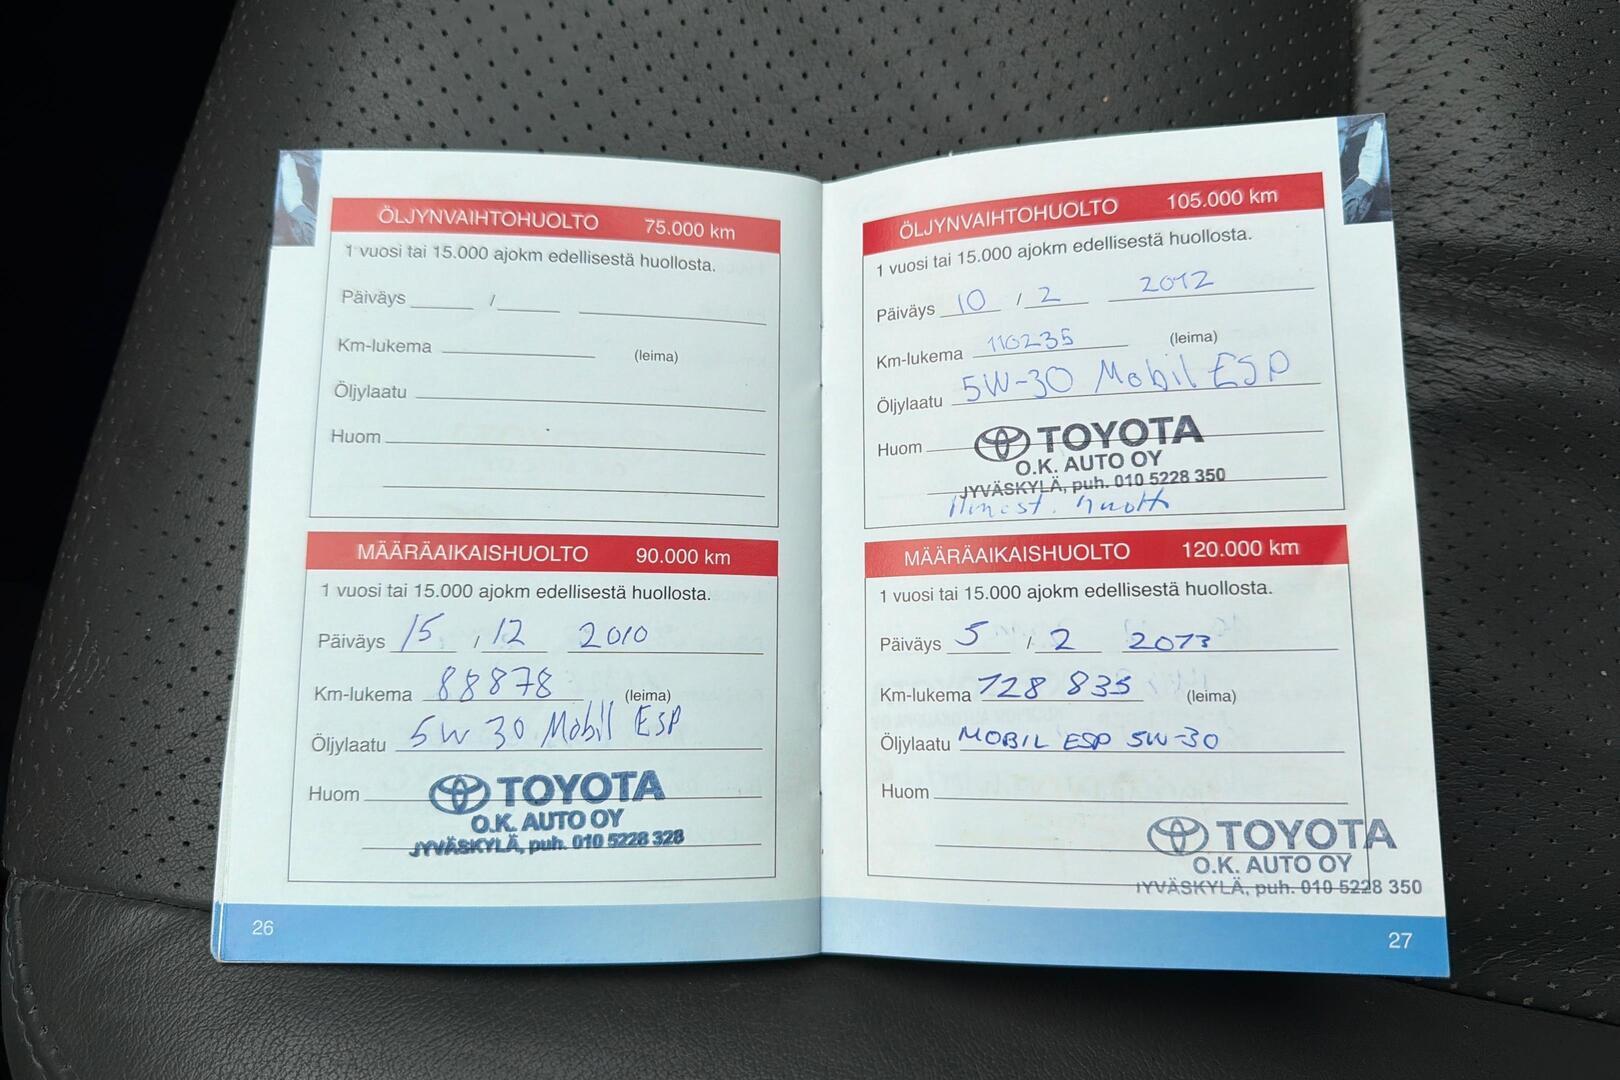 ÖLJYNVAIHTOHUOLTO 75.000 km
1 vuosi tai 15.000 ajokm edellisestä huollosta.
Päiväys /
Km-lukema (leima)
Öljylaatu
Huom
MÄÄRÄAIKAISHUOLTO 90.000 km
1 vuosi tai 15.000 ajokm edellisestä huollosta.
Päiväys 15 / 12 2010
Km-lukema 88878 (leima)
Öljylaatu 5W 30 Mobil ESP
Huom
TOYOTA
O.K. AUTO OY
JYVÄSKYLÄ, puh. 010 5228 328
26
ÖLJYNVAIHTOHUOLTO 105.000 km
1 vuosi tai 15.000 ajokm edellisestä huollosta.
Päiväys 10 / 2 2012
Km-lukema 110235 (leima)
Öljylaatu 5W-30 Mobil ESP
Huom
TOYOTA
O.K. AUTO OY
JYVÄSKYLÄ, puh. 010 5228 350
MÄÄRÄAIKAISHUOLTO 120.000 km
1 vuosi tai 15.000 ajokm edellisestä huollosta.
Päiväys 5 / 2 2013
Km-lukema 128 835 (leima)
Öljylaatu MOBIL ESP 5W-30
Huom
TOYOTA
O.K. AUTO OY
JYVÄSKYLÄ, puh. 010 5228 350
27